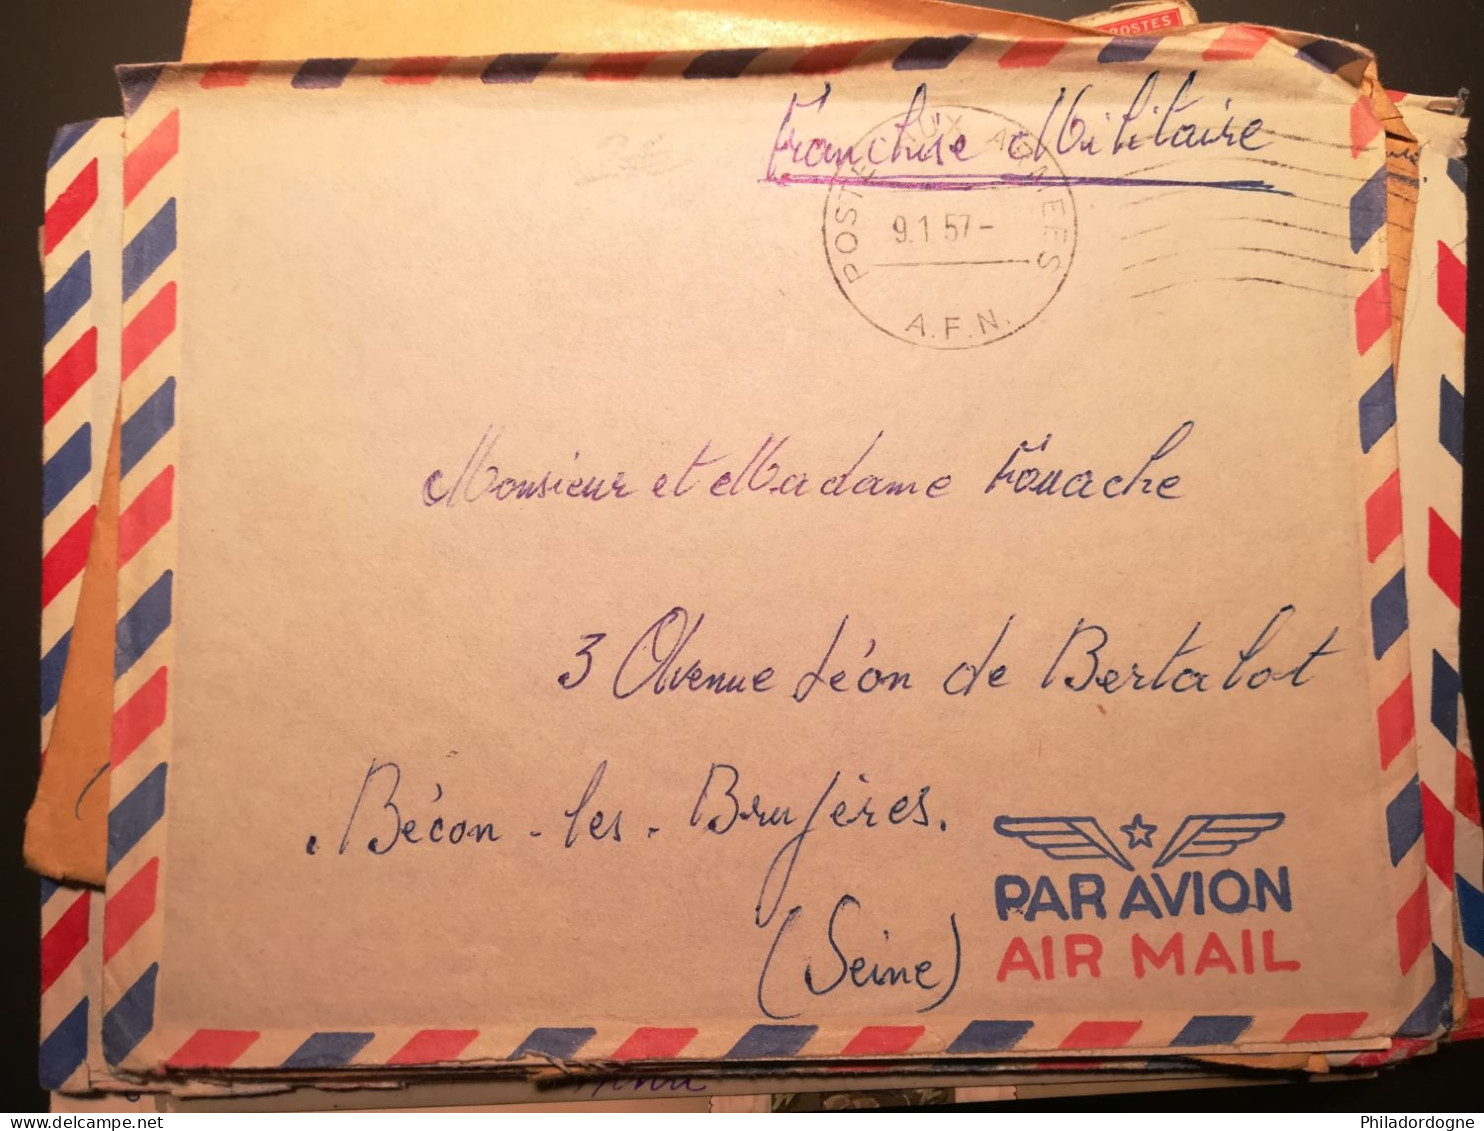 POSTES
Franchise Militaire
POSTE AUX ARMEES
9.1 57-
A.F.N.
Monsieur et Madame Fouache
3 Avenue Léon de Bertalot
Bécon-les-Bruyères.
(Seine)
PAR AVION
AIR MAIL
Philadordogne